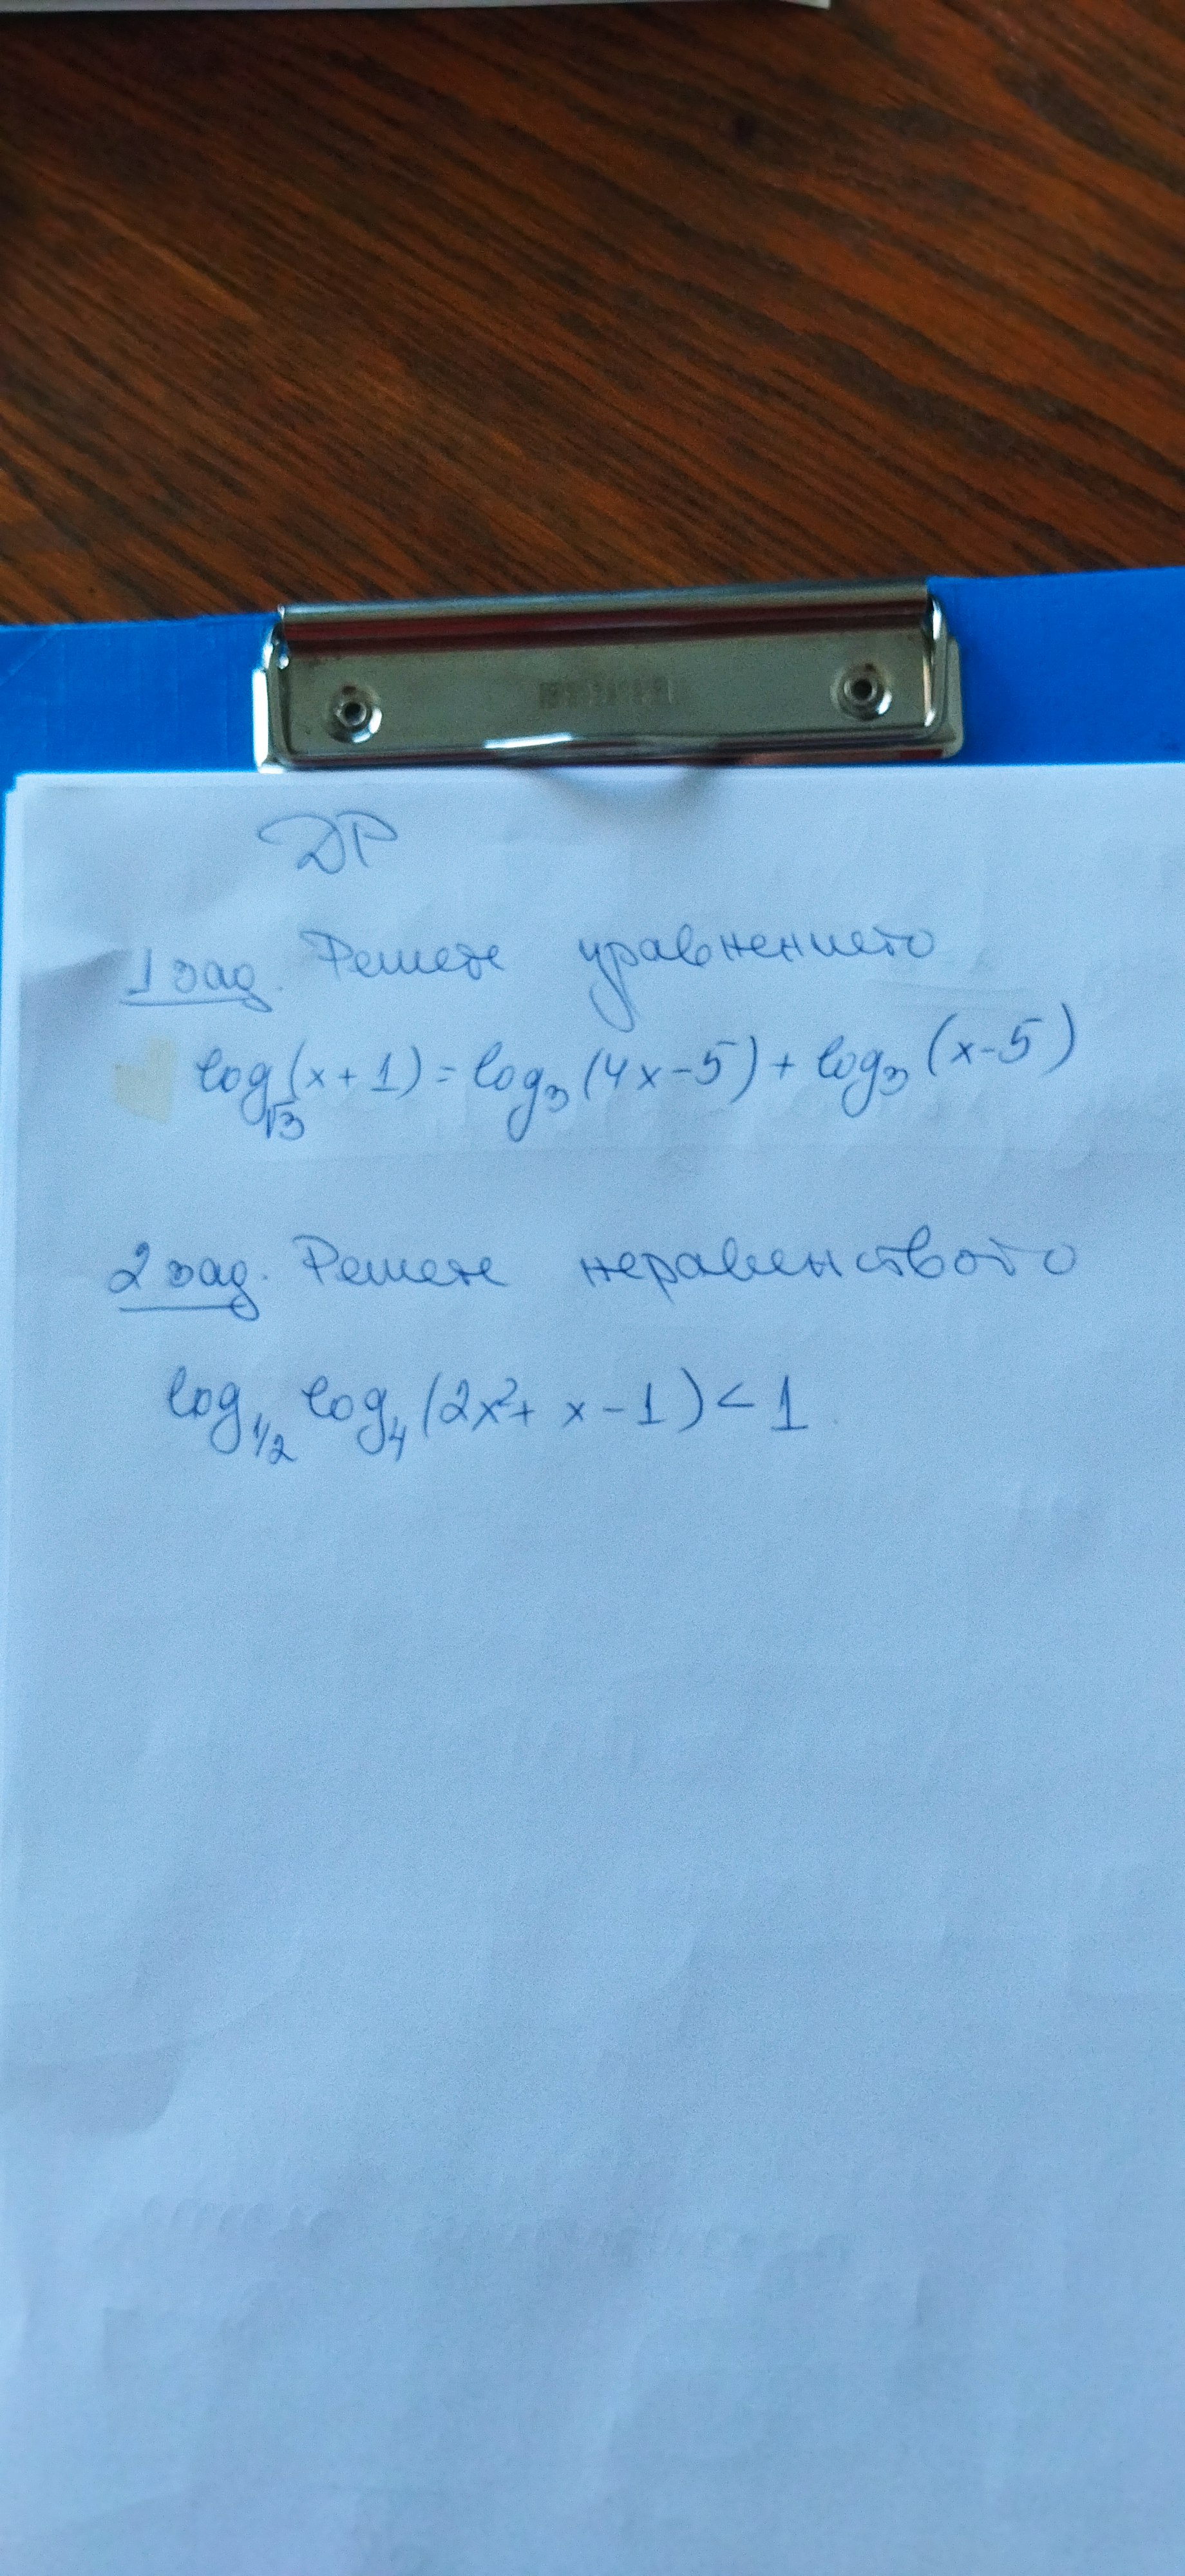 ДР
1 зад. Решете уравнението
log_√3 (x+1) = log_3 (4x-5) + log_3 (x-5)
2 зад. Решете неравенството
log_1/2 log_4 (2x²+ x-1) < 1